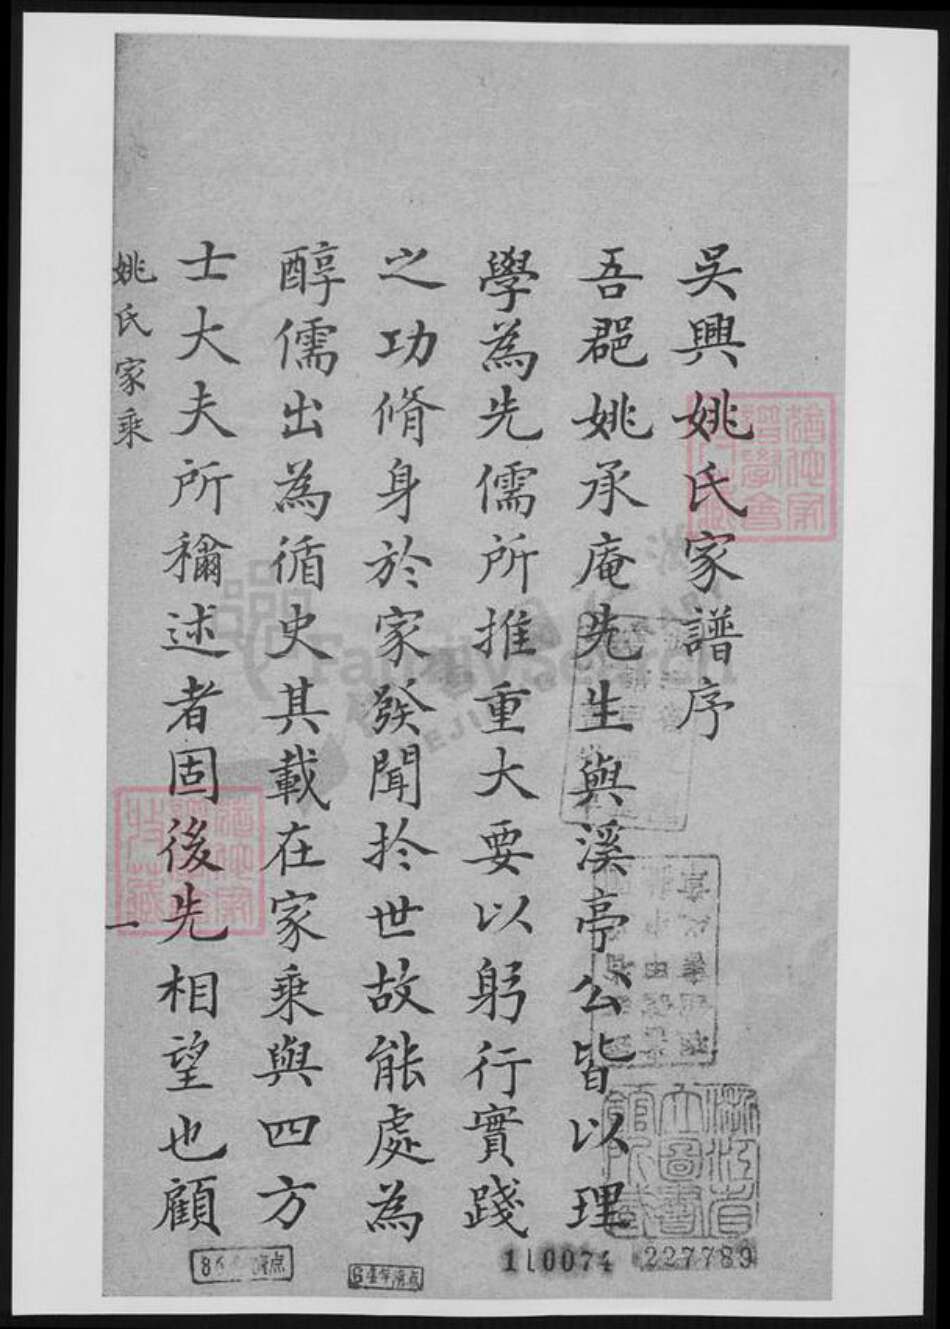 吳興姚氏家譜序
吾郡姚承庵先生與溪亭公皆以理
學為先儒所推重大要以躬行實踐
之功脩身於家發聞於世故能處為
醇儒出為循史其載在家乘與四方
士大夫所稱述者固後先相望也顧
姚氏家乘
一
110074
227789
浙江省
立圖書
館所藏
FamilySearch